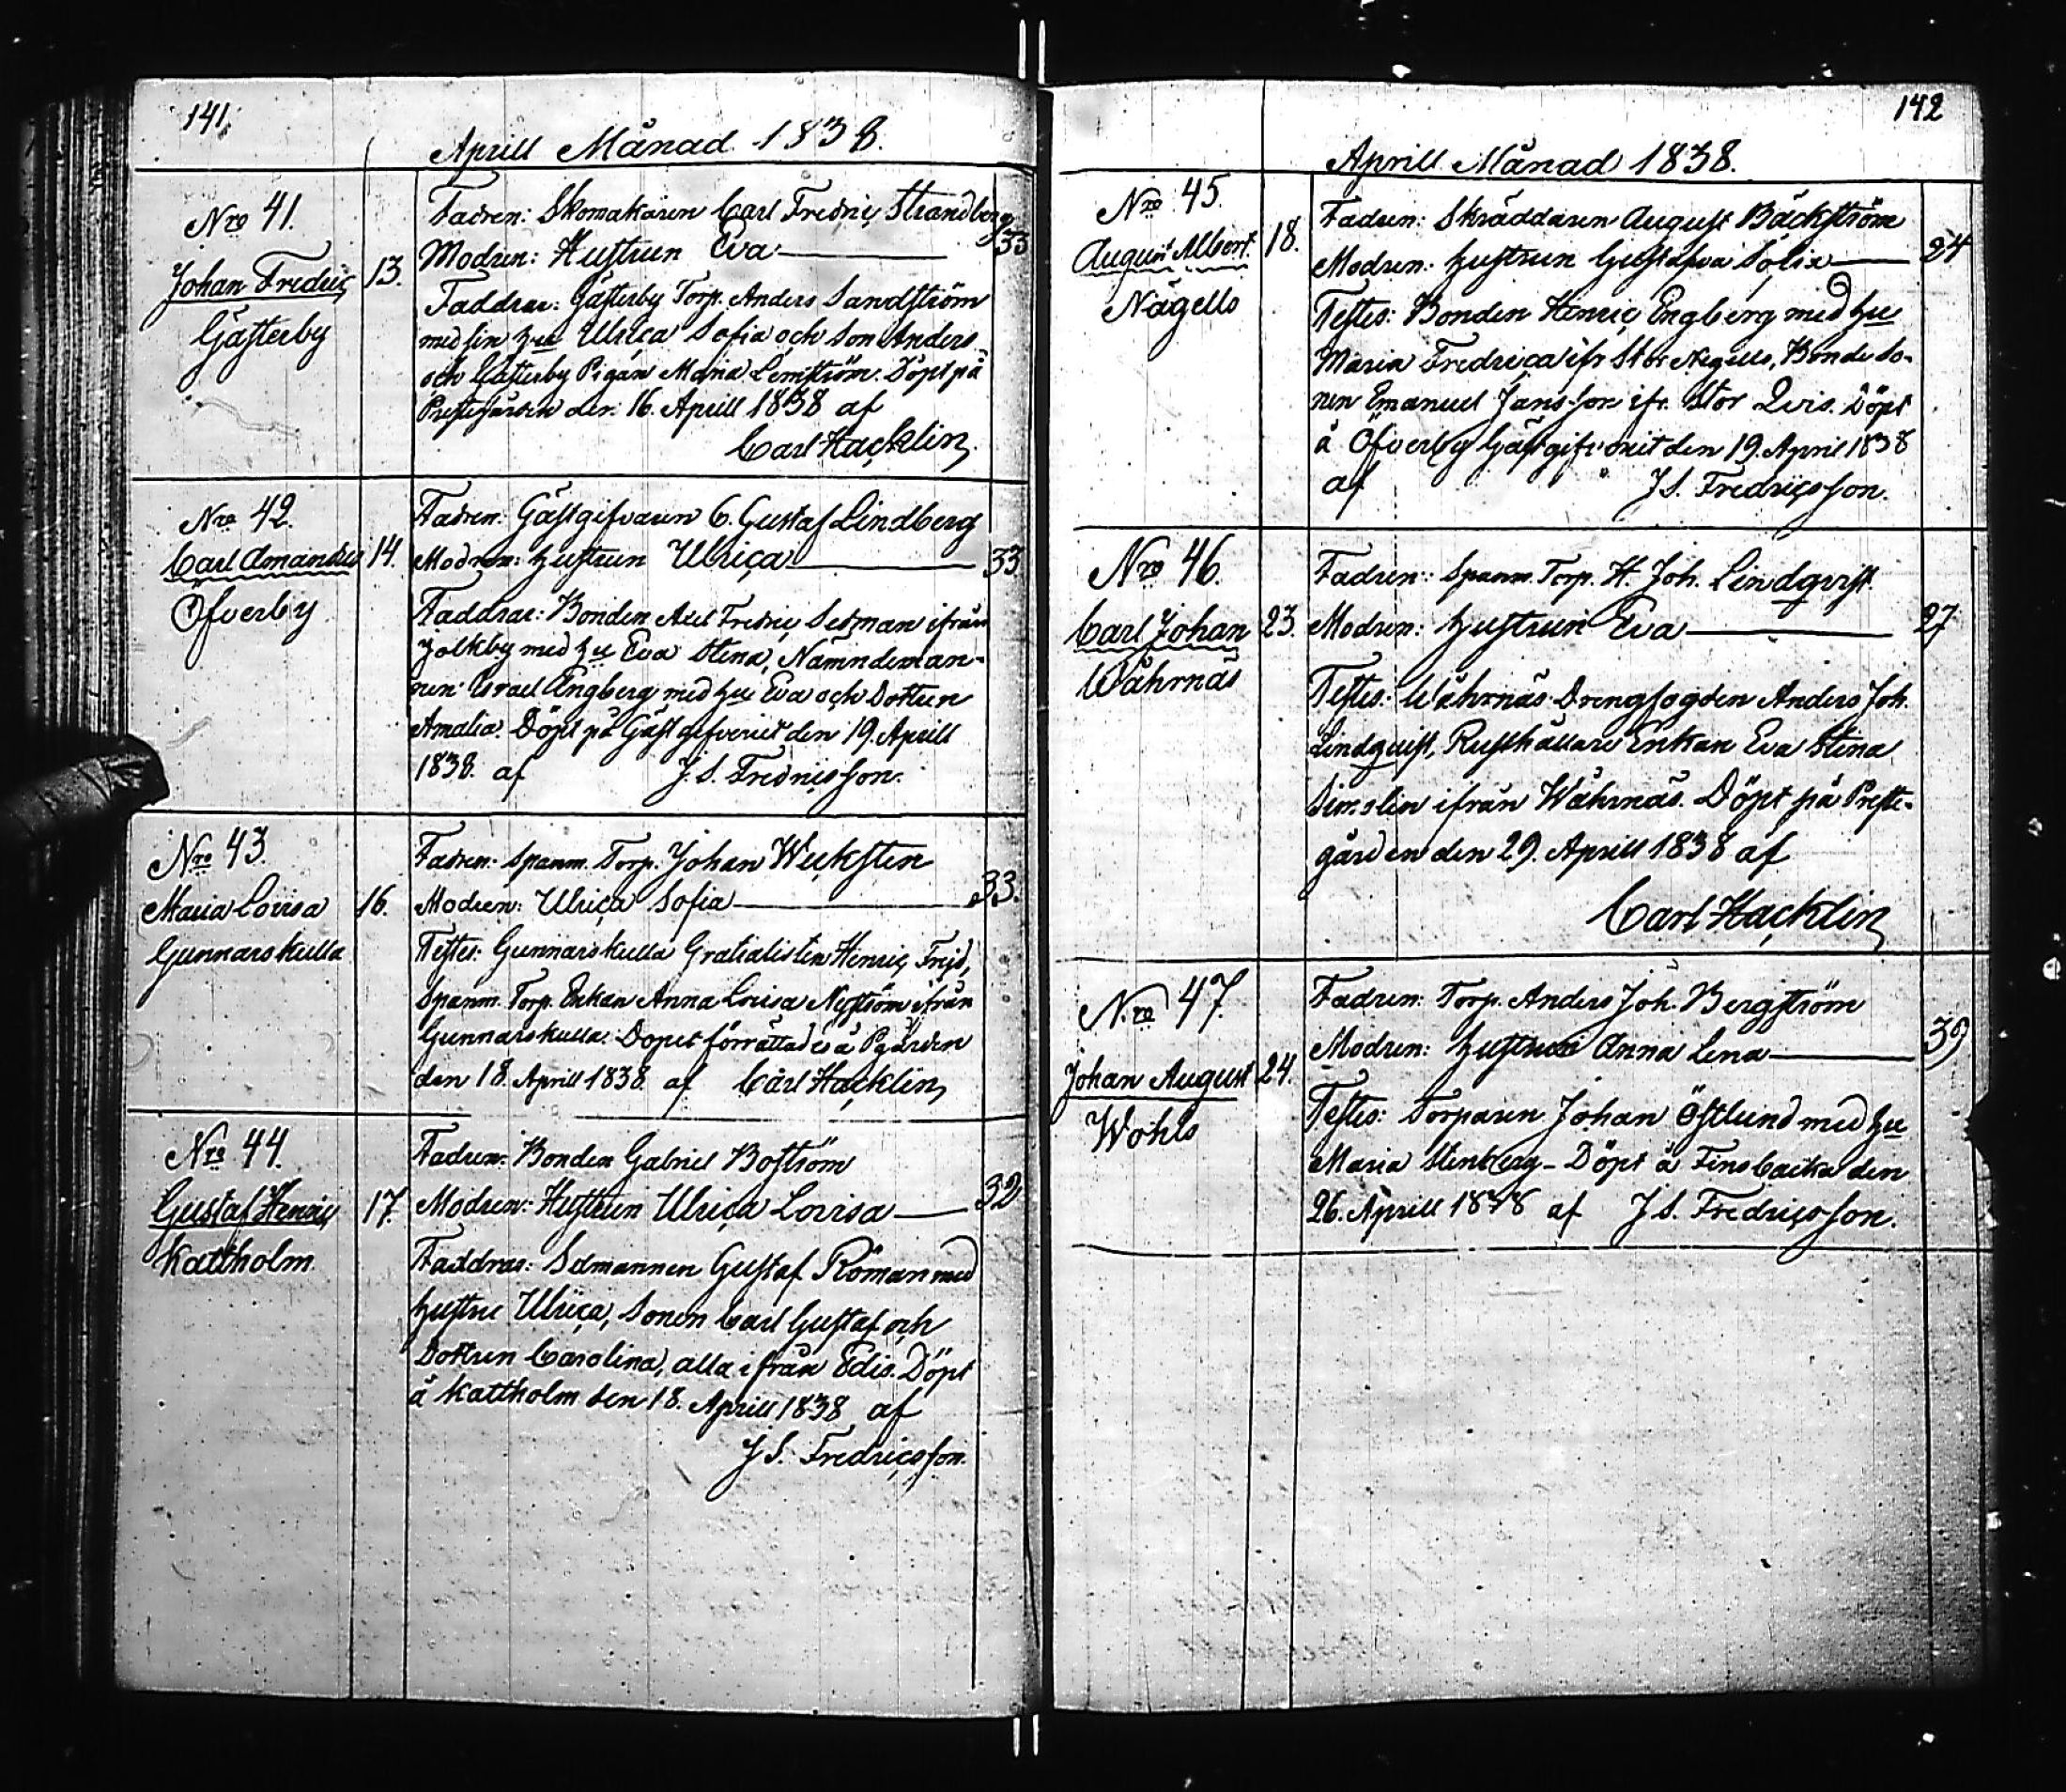 141.
Aprill Månad 1838.
Nro 41.
Johan Fredric
Gästerby
13.
Fadren: Skomakaren Carl Fredric Strandberg
Modren: Hustrun Eva 33
Faddrar: Gästerby Torp. Anders Sandström
med sin hu Ulrica Sofia och son Anders
och Gästerby Pigan Maria Lemström. Döpt på
Prestegården den 16. Aprill 1838 af
Carl Hacklin
Nro 42.
Carl Amandus
Öfverby
14.
Fadren: Gästgifvaren C. Gustaf Lindberg
Modren: hustrun Ulrica 33
Faddrar: Bonden Axel Fredric Sedman ifrån
Jolkby med hu Eva Stina, Nämndeman-
nen Israel Engberg med hu Eva och Dottern
Amalia. Döpt på Gästgifveriet den 19. Aprill
1838. af J. S. Fredricsson.
Nro 43.
Maria Lovisa
Gunnarskulla
16.
Fadren: Spanm. Torp. Johan Wecksten
Modren: Ulrica Sofia 33.
Testes: Gunnarskulla Gratialisten Henric Frejd,
Spanm. Torp. Enkan Anna Lovisa Nyström ifrån
Gunnarskulla. Dopet förrättades å Pgården
den 18. Aprill 1838 af Carl Hacklin
Nro 44.
Gustaf Henric
Kattholm
17.
Fadren: Bonden Gabriel Boström
Modren: Hustrun Ulrica Lovisa 32
Faddrar: Sedmannen Gustaf Röman med
hustru Ulrica, Sonen Carl Gustaf och
Dottren Carolina, alla ifrån Edis. Döpt
å Kattholm den 18. Aprill 1838 af
J S. Fredricsson.
142
Aprill Månad 1838.
Nro 45.
August Albert.
Nägells
18.
Fadren: Skräddaren August Bäckström
Modren: hustrun Gustafva Sofia 24
Testes: Bonden Henric Engberg med hu
Maria Fredrica ifr Stor Negells, Bonde So-
nen Emanuel Jansson ifr. Stor Qvis. Döpt
å Öfverby Gästgifveriet den 19. April 1838
af J S. Fredricsson.
Nro 46.
Carl Johan
Wåhrnäs
23.
Fadren: Spanm. Torp. H. Joh. Lindqvist
Modren: hustrun Eva 27
Testes: Wåhrnäs Drengfogden Anders Joh.
Lindqvist, Rusthållare Enkan Eva Stina
Simolin ifrån Wåhrnäs. Döpt på Preste-
gården den 29. Aprill 1838 af
Carl Hacklin
Nro 47.
Johan August
Wohls
24.
Fadren: Torp. Anders Joh. Bergström
Modren: hustrun Anna Lena 39
Testes: Torparen Johan Östlund med hu
Maria Stenberg - Döpt å Finsbacka den
26. Aprill 1838 af J S. Fredricsson.